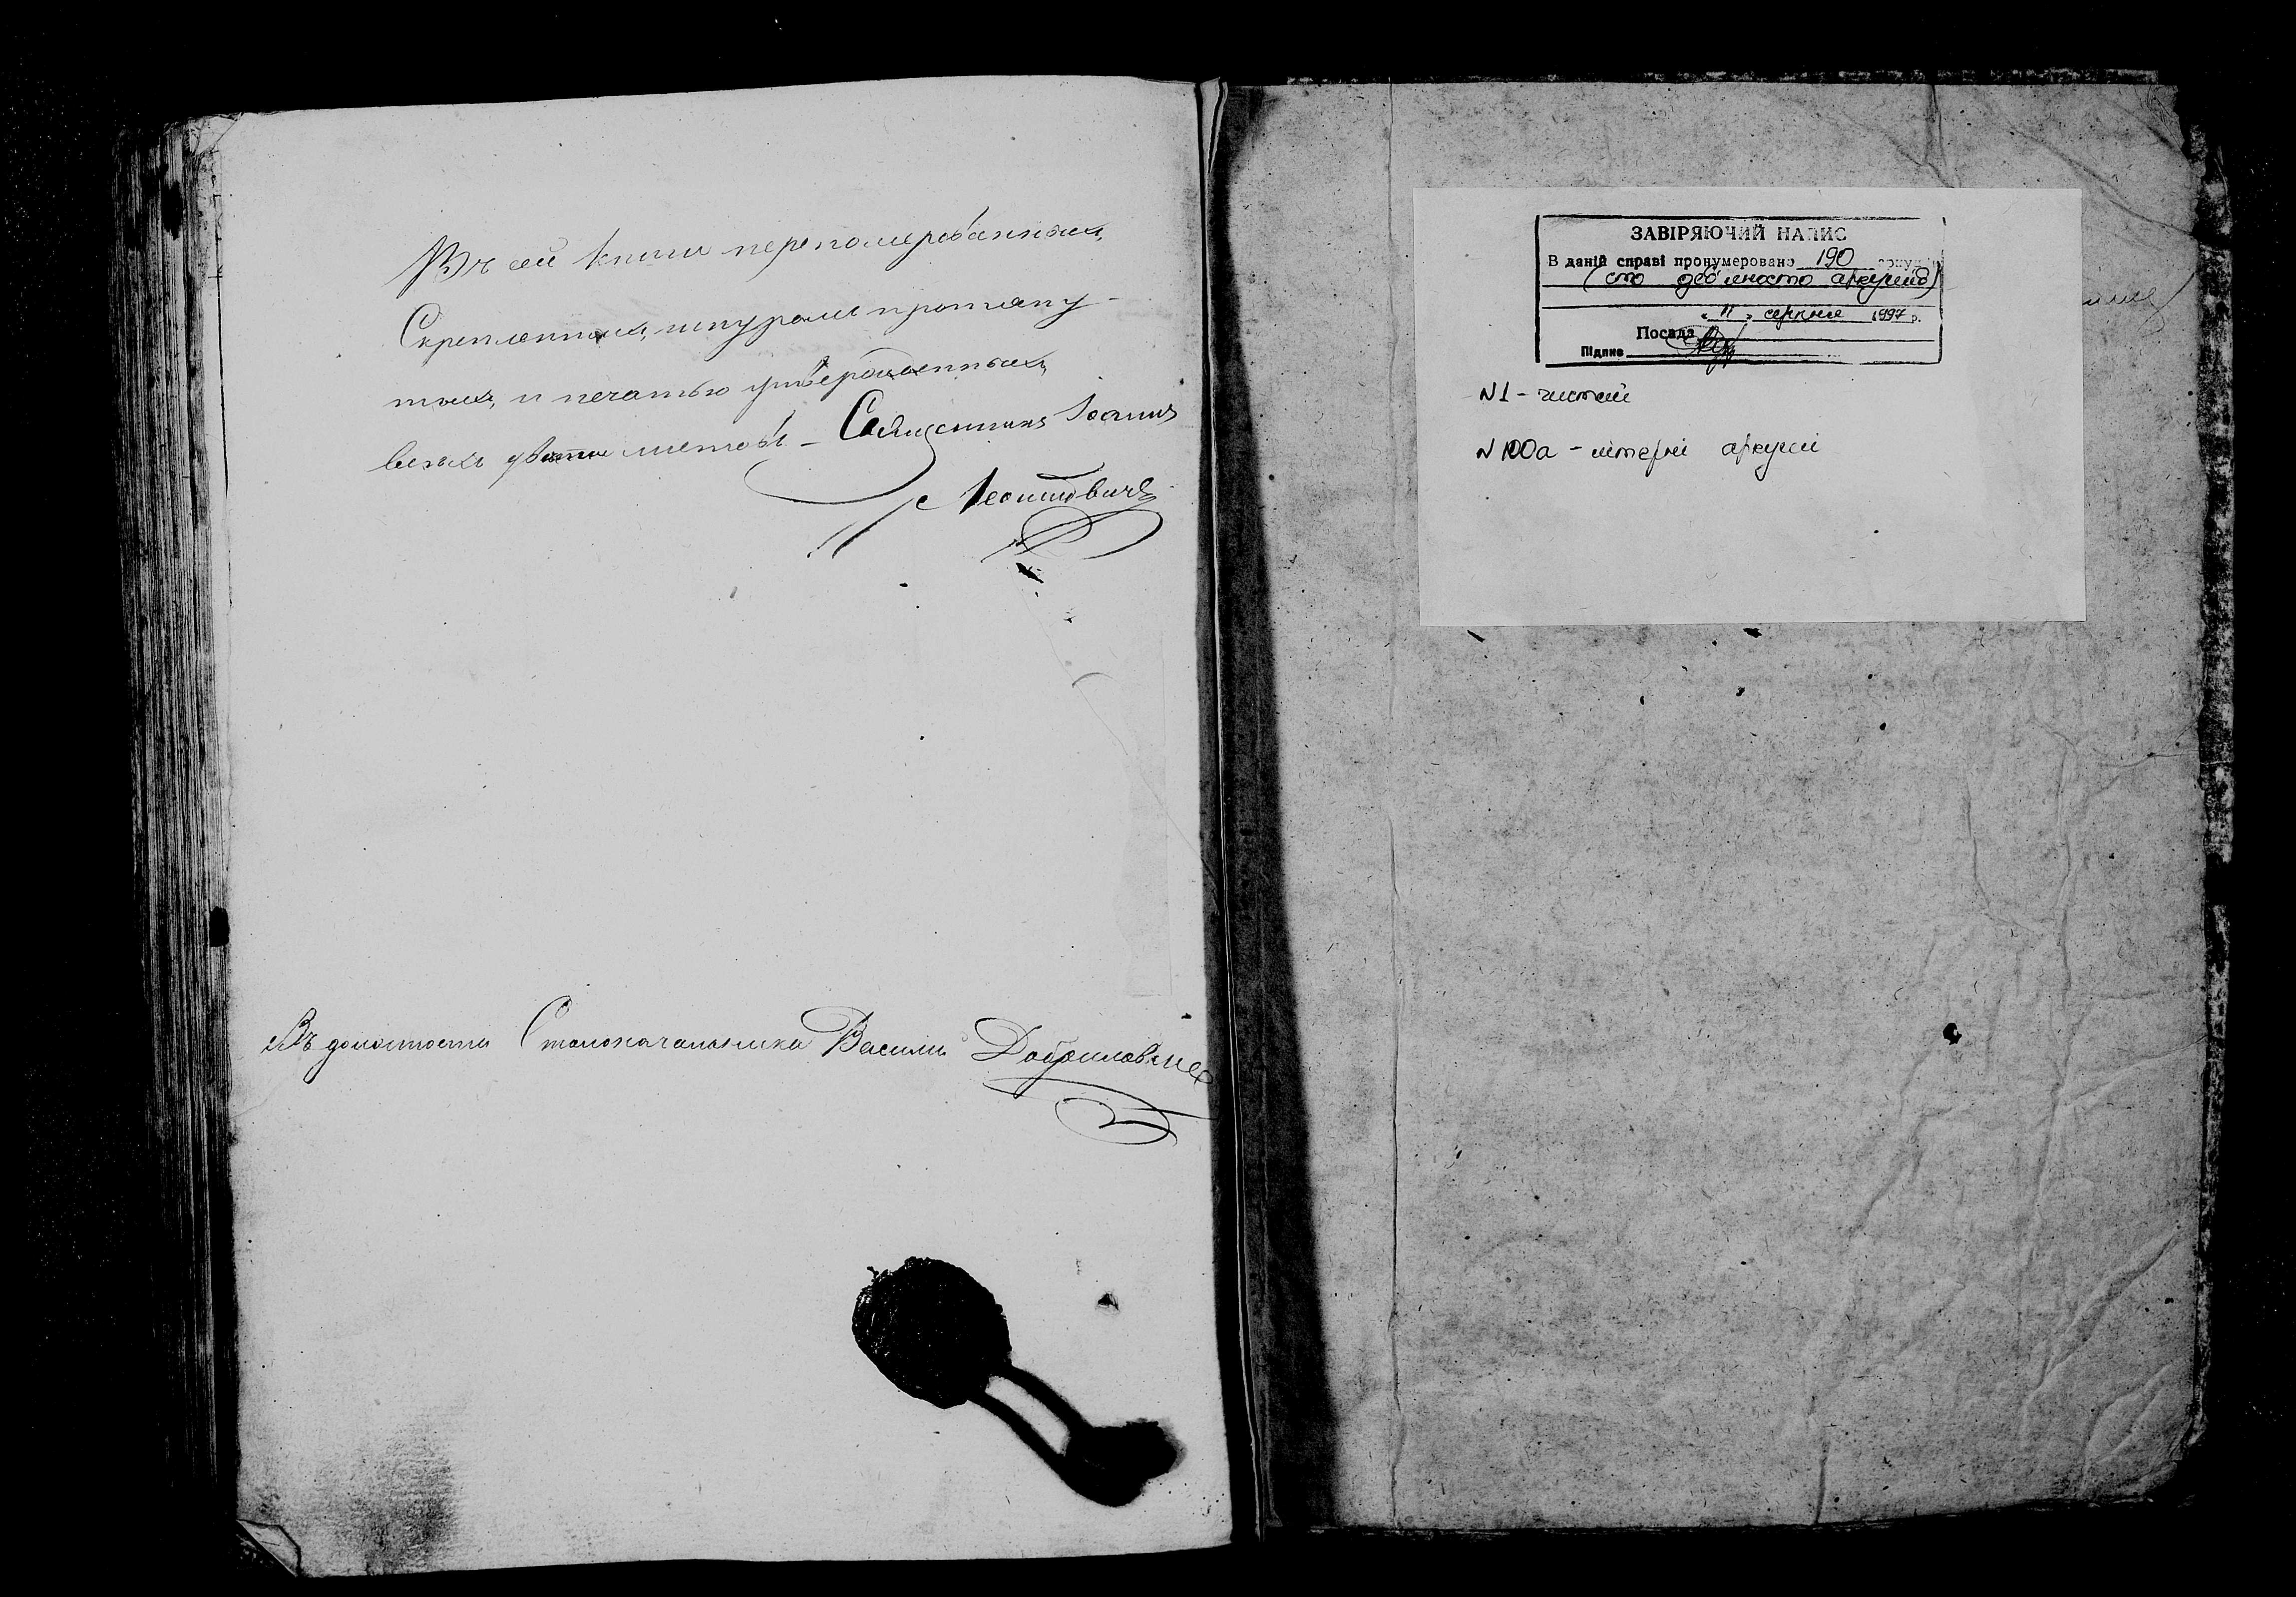 Въ сей книги перепомерованныхъ,
Скрепленныхъ, шнуромъ протяну-
тыхъ, и печатью утвержденныхъ,
всехъ листовъ – Священникъ Іоаннъ
Леонтовичъ
Въ должности Столоначальника Василій Добриловскій
ЗАВІРЯЮЧИЙ НАПИС
В даній справі пронумеровано 190 аркушів
(сто дев'яносто аркушів)
„ 11 „ серпня 1997 р.
Посада
Підпис
N1 - чистий
N 100а - літерні аркуші